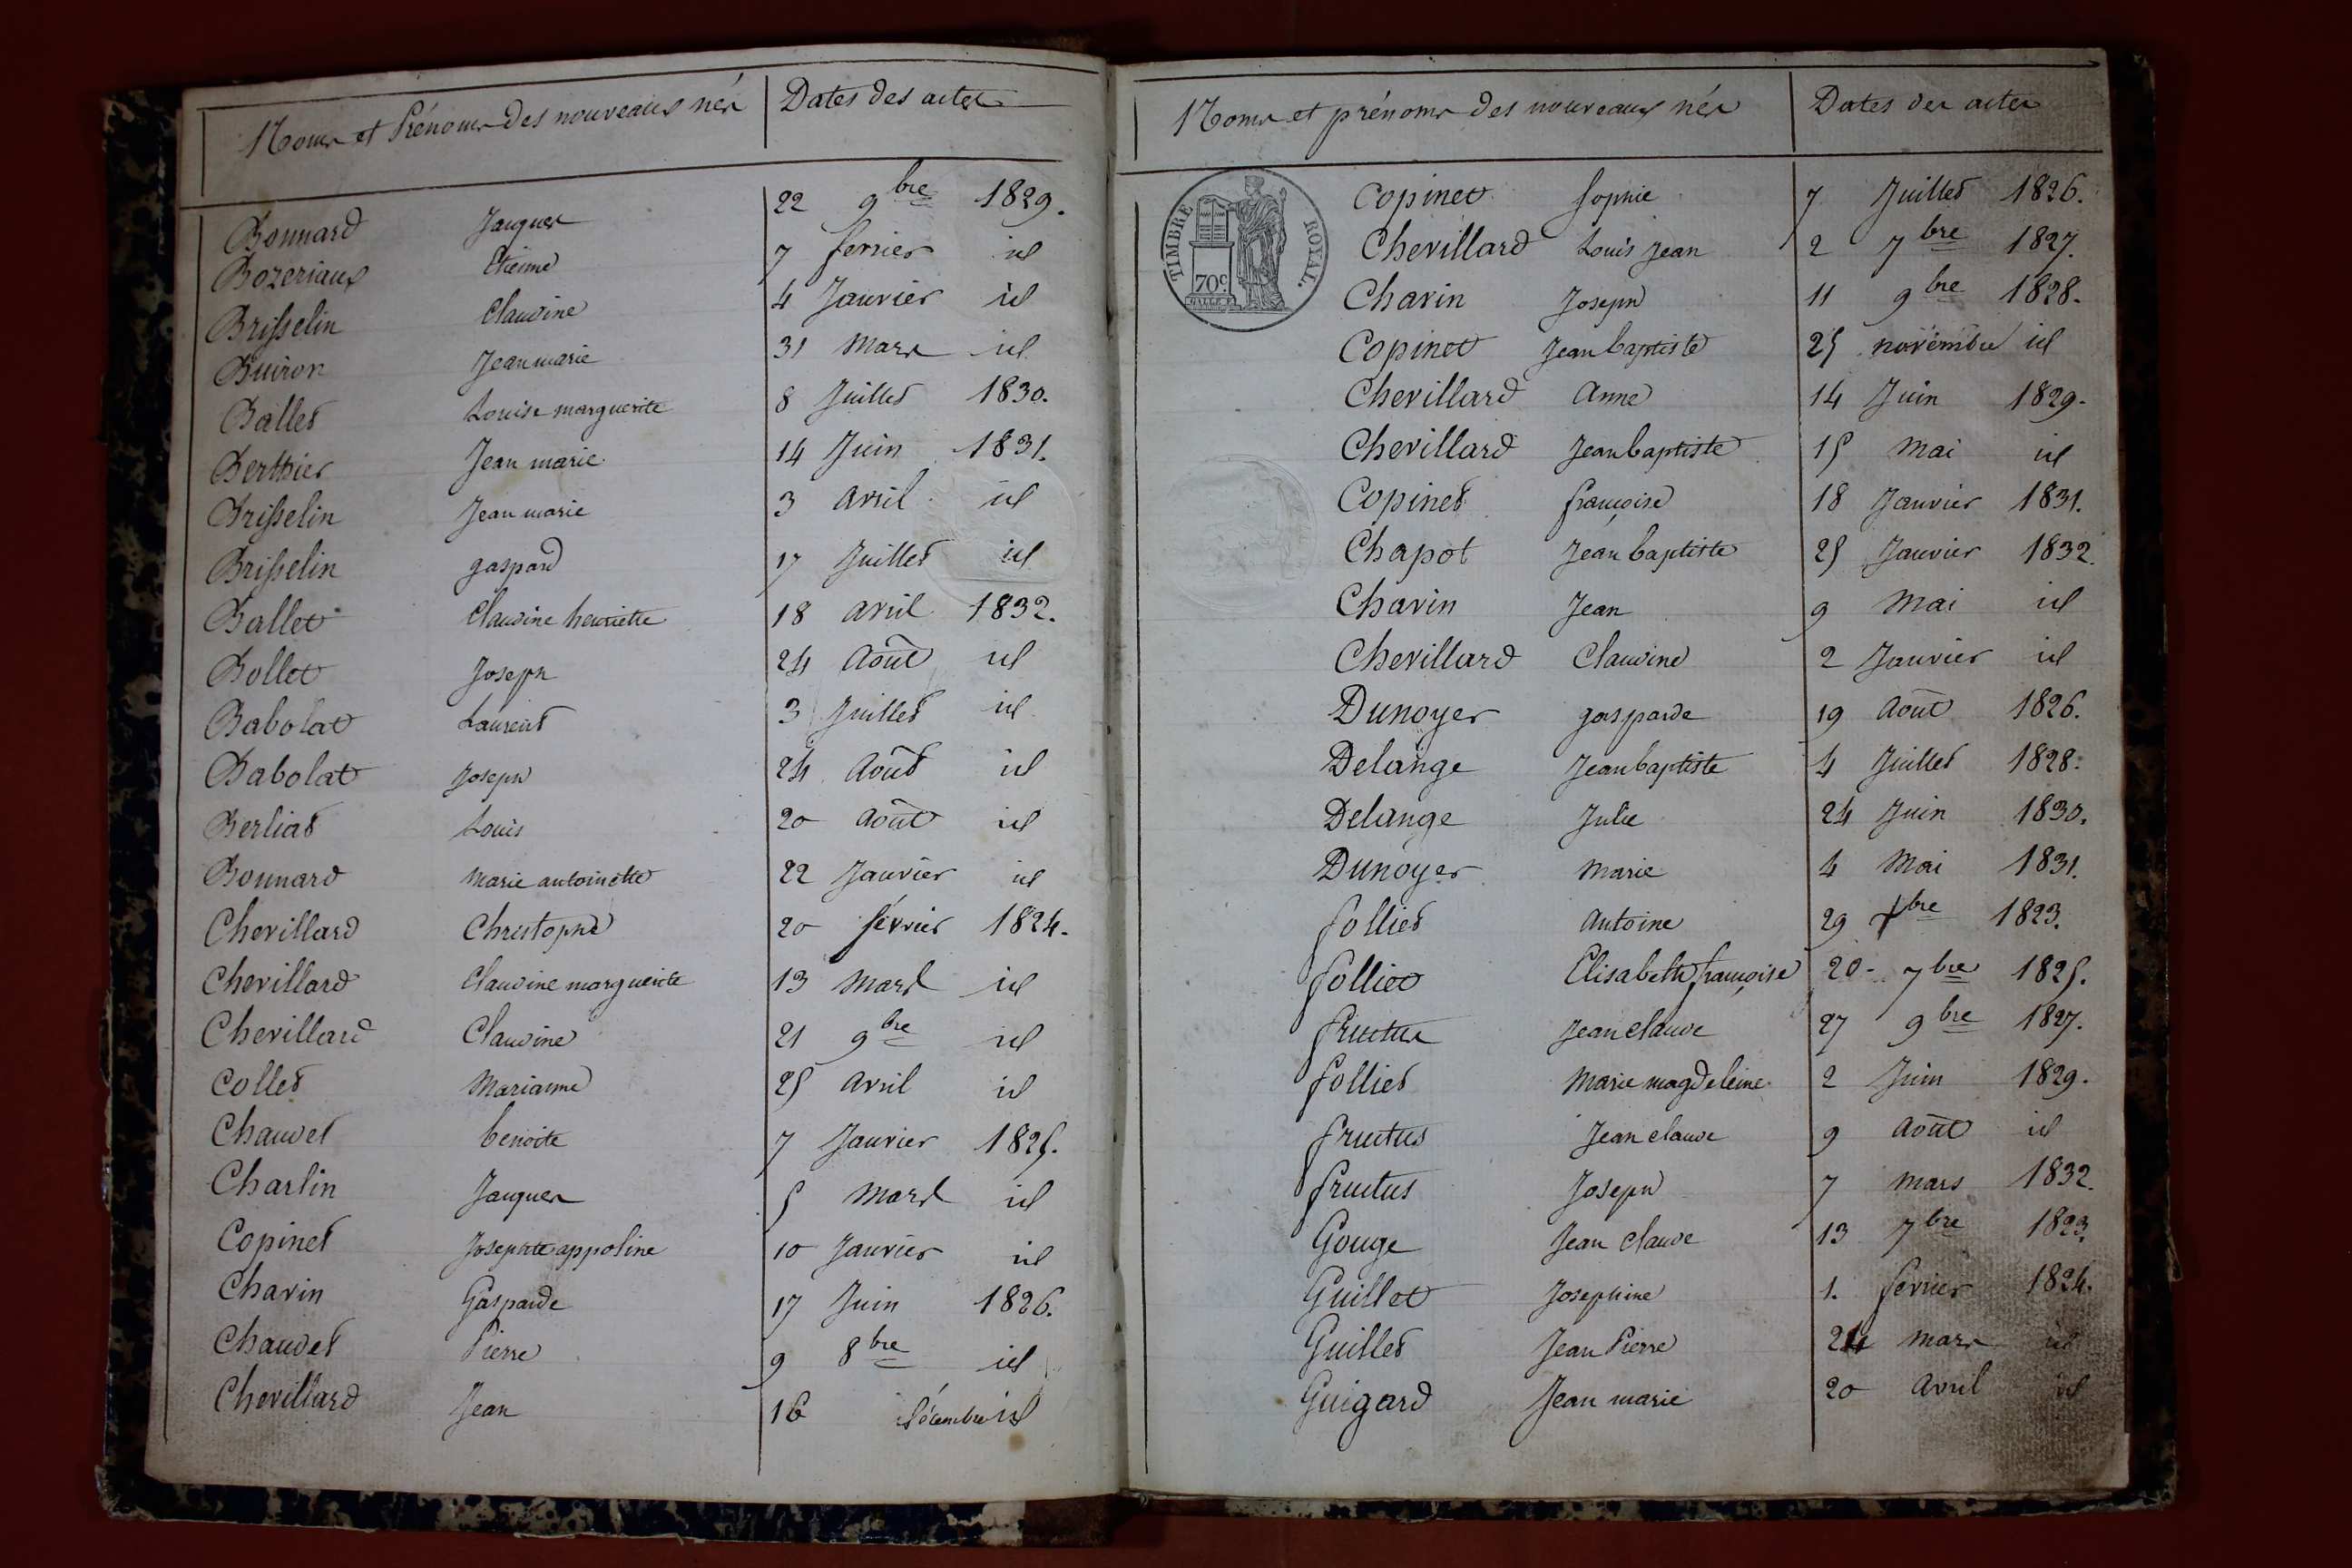 Noms et Prénoms des nouveaux nés Dates des actes
Bonnard Jacques 22 9bre 1829.
Bozeriaux Etienne 7 fevrier id
Brisselin Claudine 4 Janvier id
Buiron Jean marie 31 Mars id
Ballet Louise marguerite 8 Juillet 1830.
Berthier Jean marie 14 Juin 1831.
Brisselin Jean marie 3 avril id
Brisselin gaspard 17 Juillet id
Ballet Claudine henriette 18 avril 1832.
Bollet Joseph 24 Août id
Babolat Laurent 3 Juillet id
Babolat Joseph 24 Août id
Berliat Louis 20 août id
Bonnard Marie antoinette 22 Janvier id
Chevillard Christophe 20 février 1824.
Chevillard Claudine marguerite 13 Mars id
Chevillard Claudine 21 9bre id
Collet Marianne 25 avril id
Chaudet benoite 7 Janvier 1825.
Charlin Jacques 5 Mars id
Copinet Josephte appoline 10 Janvier id
Chavin Gasparde 17 Juin 1826.
Chaudet Pierre 9 8bre id
Chevillard Jean 16 décembre id
Noms et prénoms des nouveaux nés Dates des actes
TIMBRE ROYAL.
70c
Copinet Sophie 7 Juillet 1826.
Chevillard Louis Jean 2 7bre 1827.
Chavin Joseph 11 9bre 1828.
Copinet Jean baptiste 25 novembre id
Chevillard Anne 14 Juin 1829.
Chevillard Jean baptiste 15 Mai id
Copinet françoise 18 Janvier 1831.
Chapot Jean baptiste 25 Janvier 1832.
Chavin Jean 9 Mai id
Chevillard Claudine 2 Janvier id
Dunoyer gasparde 19 Août 1826.
Delange Jean baptiste 4 Juillet 1828.
Delange Julie 24 Juin 1830.
Dunoyer Marie 4 Mai 1831.
folliet Antoine 29 bre 1823.
folliet Elisabeth françoise 20 7bre 1825.
fructus Jean claude 27 9bre 1827.
folliet Marie magdeleine 2 Juin 1829.
fructus Jean claude 9 Août id
fructus Joseph 7 mars 1832.
Gouge Jean claude 13 7bre 1823.
Guillet Josephine 1. fevrier 1824.
Guillet Jean Pierre 24 mars id
Guigard Jean marie 20 avril id